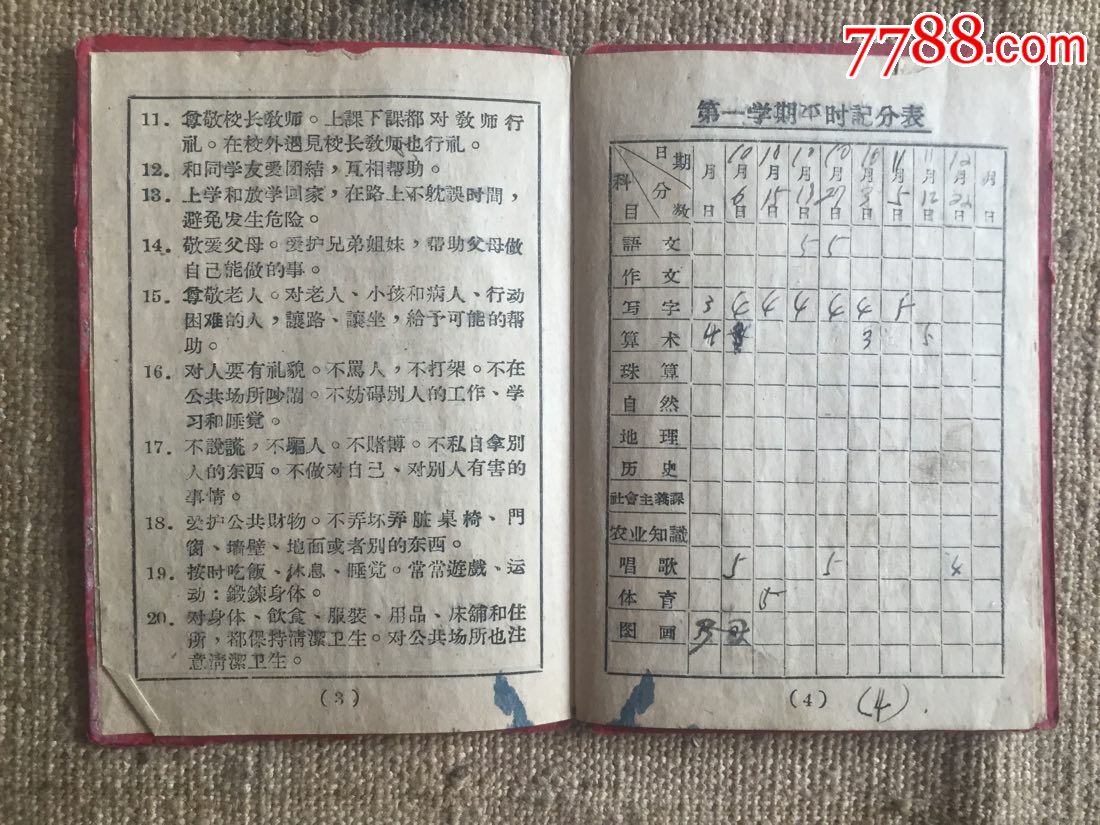 7788.com
11. 尊敬校长敎师。上課下課都对敎师行
礼。在校外遇見校长敎师也行礼。
12. 和同学友爱团結，互相帮助。
13. 上学和放学回家，在路上不躭誤时間，
避免发生危险。
14. 敬爱父母。爱护兄弟姐妹，帮助父母做
自己能做的事。
15. 尊敬老人。对老人、小孩和病人、行动
困难的人，讓路、讓坐，給予可能的帮
助。
16. 对人要有礼貌。不罵人，不打架。不在
公共场所吵鬧。不妨碍別人的工作、学
习和睡觉。
17. 不說謊，不騙人。不賭博。不私自拿別
人的东西。不做对自己、对別人有害的
事情。
18. 爱护公共財物。不弄坏弄脏桌椅、門
窗、墻壁、地面或者別的东西。
19. 按时吃飯、休息、睡觉。常常遊戲、运
动；鍛鍊身体。
20. 对身体、飲食、服裝、用品、床舖和住
所，都保持清潔卫生。对公共场所也注
意清潔卫生。
(3)
第一学期平时記分表
日期 分数 科目
月 10月 10月 10月 10月 10月 11月 11月 12月 月
日 6日 15日 日 27日 3日 5日 12日 22日 日
語文 5 5
作文
写字 3 4 4 4 4 4
算术 4 3 5
珠算
自然
地理
历史
社會主義課
农业知識
唱歌 5 5 4
体育 5
图画
(4) (4).